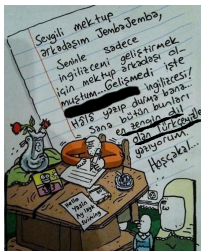 Sevgili mektup
arkadaşım JembaJemba,
Seninle sadece
ingilizceni geliştirmek
için mektup arkadaşı ol-
muştum...Gelişmedi işte
ingilizcesi!
Hâlâ yazıp durma bana...
Sana bütün bunları
en zengin dil
olan Türkçeyle
yazıyorum.
Hoşçakal...
Hello